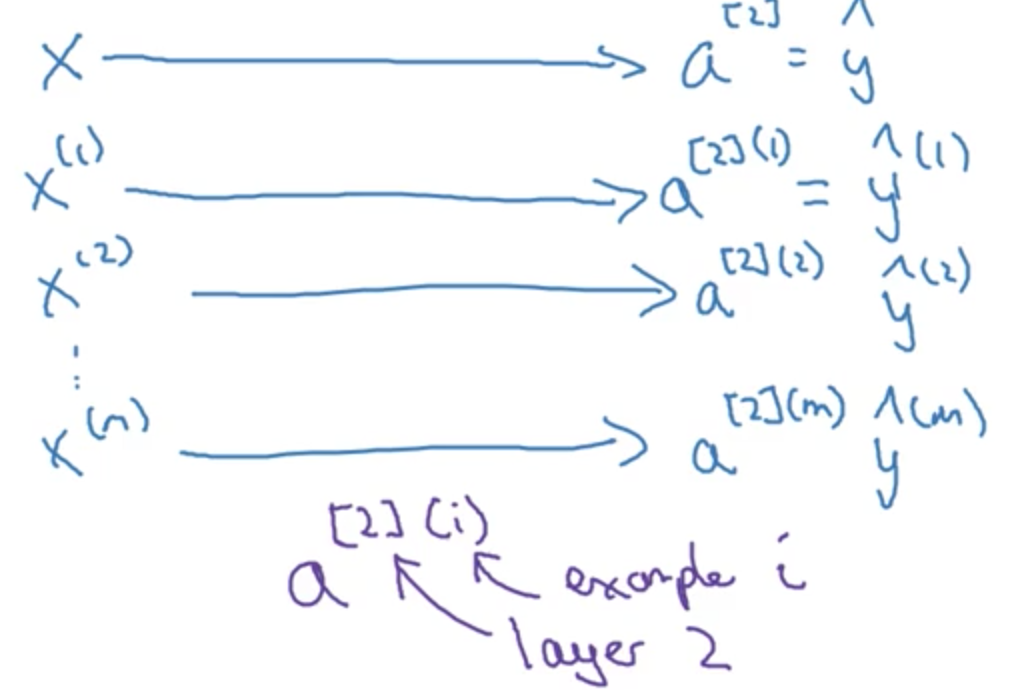 x → a^[2] = ŷ
x^(1) → a^[2](1) = ŷ^(1)
x^(2) → a^[2](2) ŷ^(2)
⋮
x^(m) → a^[2](m) ŷ^(m)
a^[2](i)
example i
layer 2